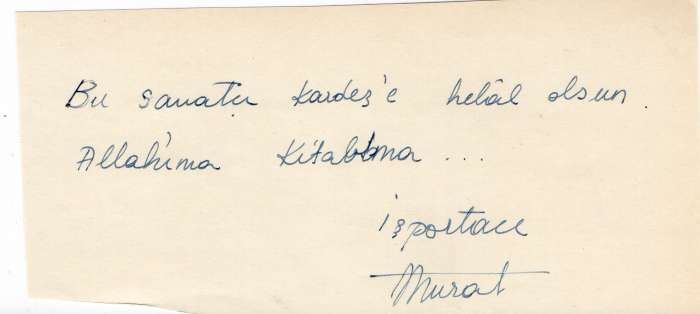 Bu sanatçı kardeş'e helâl olsun.
Allah'ıma Kitabıma ...
işportacı
Murat